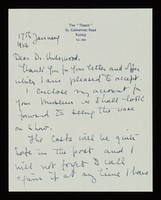 The "Fleece"
St. Catherines Road
17th January
1956
Dear Dr. Underwood,
Thank you for your letter and offer
which I am pleased to accept.
I enclose my account for
your museum and shall look
forward to seeing the case
on show.
The casts will be quite
safe in the post and I
will not forget to call
again if at any time I have